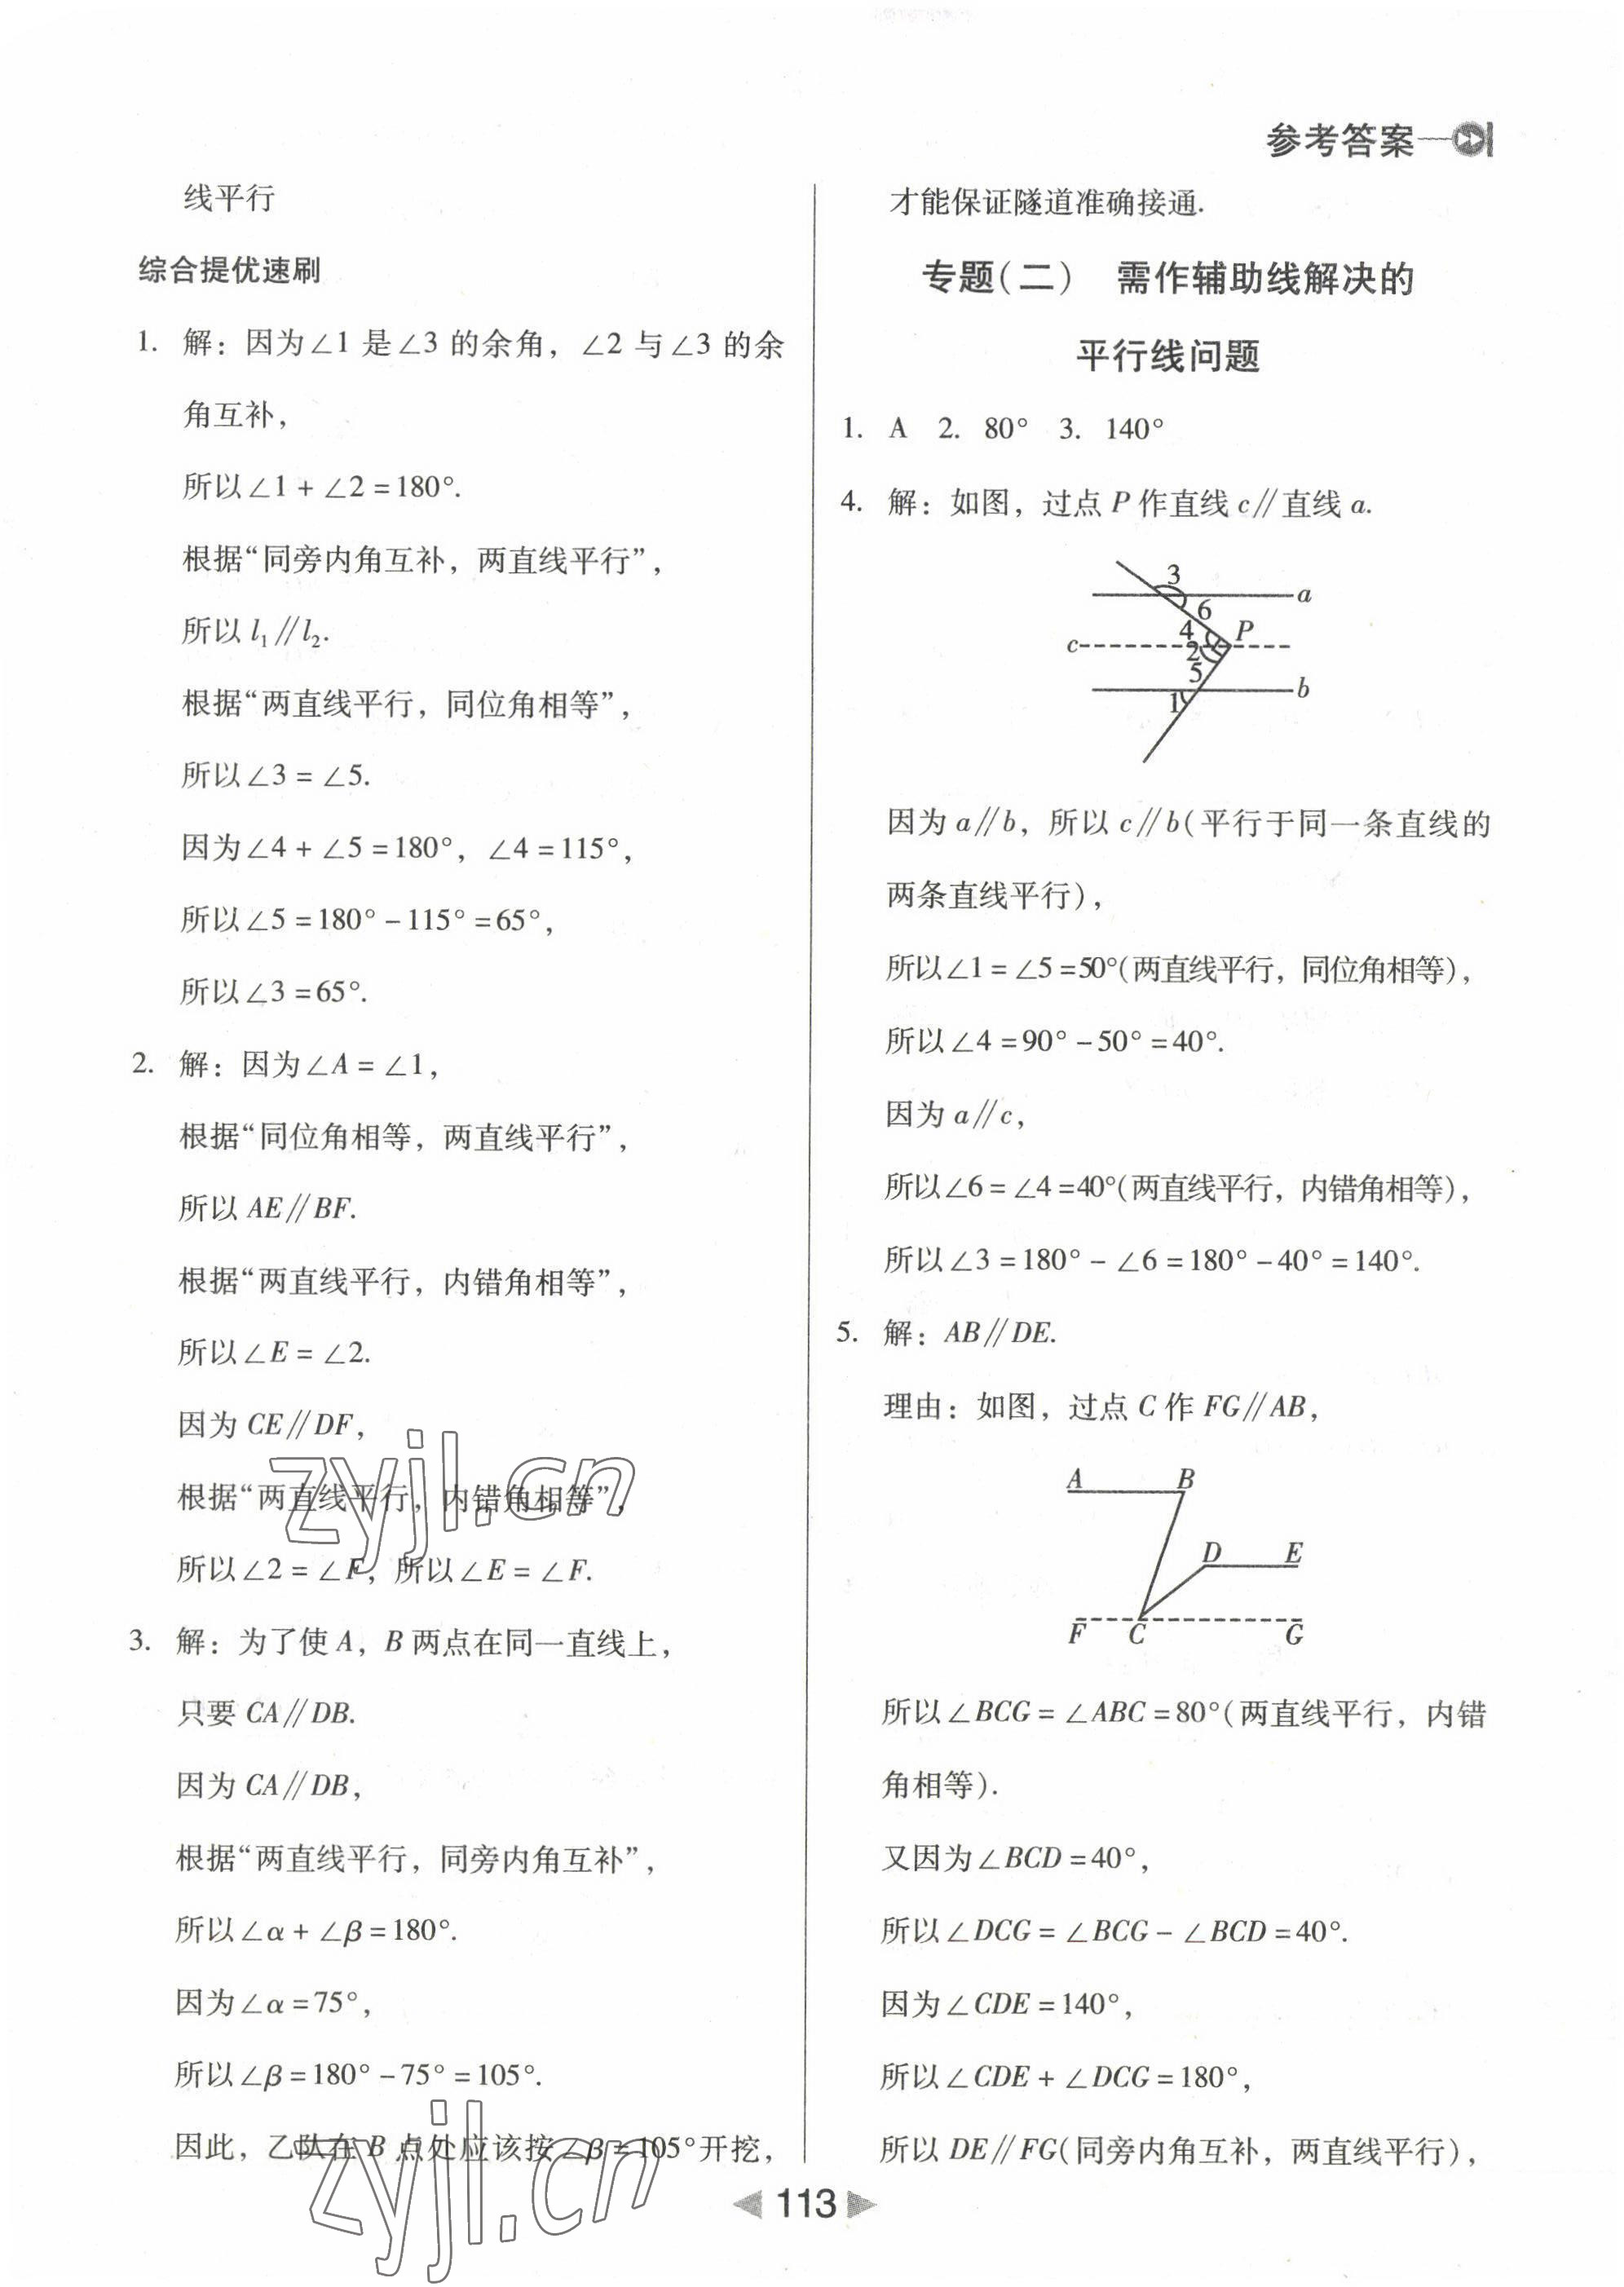 参考答案
线平行
综合提优速刷
1. 解：因为∠1 是∠3 的余角，∠2 与∠3 的余
角互补，
所以∠1 + ∠2 = 180°.
根据“同旁内角互补，两直线平行”，
所以 l₁∥l₂.
根据“两直线平行，同位角相等”，
所以∠3 = ∠5.
因为∠4 + ∠5 = 180°，∠4 = 115°，
所以∠5 = 180° - 115° = 65°，
所以∠3 = 65°.
2. 解：因为∠A = ∠1，
根据“同位角相等，两直线平行”，
所以 AE∥BF.
根据“两直线平行，内错角相等”，
所以∠E = ∠2.
因为 CE∥DF，
根据“两直线平行，内错角相等”，
所以∠2 = ∠F，所以∠E = ∠F.
3. 解：为了使 A，B 两点在同一直线上，
只要 CA∥DB.
因为 CA∥DB，
根据“两直线平行，同旁内角互补”，
所以∠α + ∠β = 180°.
因为∠α = 75°，
所以∠β = 180° - 75° = 105°.
因此，乙队在 B 点处应该按∠β = 105°开挖，
才能保证隧道准确接通.
专题(二) 需作辅助线解决的
平行线问题
1. A 2. 80° 3. 140°
4. 解：如图，过点 P 作直线 c∥直线 a.
3
a
6
4
P
c
2
5
b
1
因为 a∥b，所以 c∥b(平行于同一条直线的
两条直线平行)，
所以∠1 = ∠5 = 50°(两直线平行，同位角相等)，
所以∠4 = 90° - 50° = 40°.
因为 a∥c，
所以∠6 = ∠4 = 40°(两直线平行，内错角相等)，
所以∠3 = 180° - ∠6 = 180° - 40° = 140°.
5. 解：AB∥DE.
理由：如图，过点 C 作 FG∥AB，
A B
D E
F C G
所以∠BCG = ∠ABC = 80°(两直线平行，内错
角相等).
又因为∠BCD = 40°，
所以∠DCG = ∠BCG - ∠BCD = 40°.
因为∠CDE = 140°，
所以∠CDE + ∠DCG = 180°，
所以 DE∥FG(同旁内角互补，两直线平行)，
113
zyjl.cn
zyjl.cn